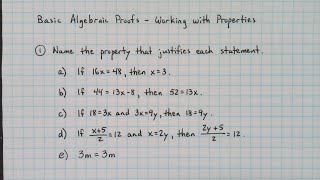 Basic Algebraic Proofs - Working with Properties
① Name the property that justifies each statement.
a) If 16x = 48, then x = 3.
b) If 44 = 13x - 8, then 52 = 13x.
c) If 18 = 3x and 3x = 9y, then 18 = 9y.
d) If (x+5)/2 = 12 and x = 2y, then (2y+5)/2 = 12.
e) 3m = 3m